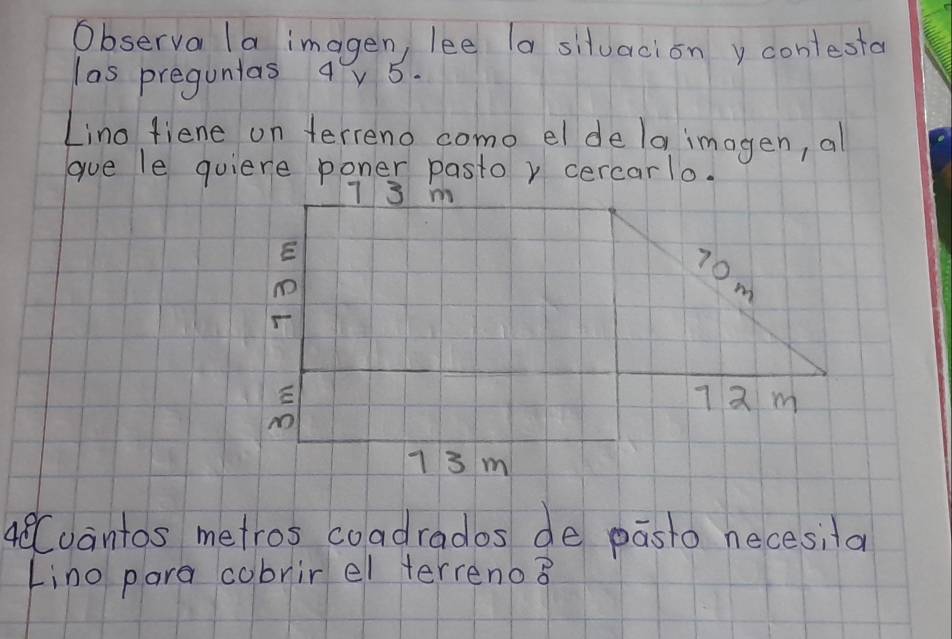 Observa la imagen, lee la situación y contesta
las preguntas 4 y 5.
Lino tiene un terreno como el de la imagen, al
que le quiere poner pasto y cercarlo.
13 m
13 m
10 m
3 m
12 m
13 m
4¿Cuántos metros cuadrados de pasto necesita
Lino para cubrir el terreno?